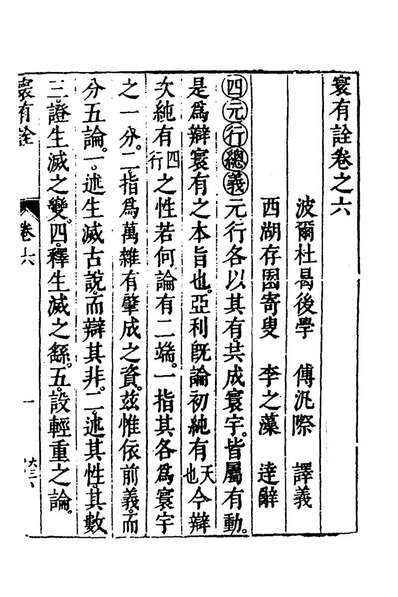 寰有詮卷之六
波爾杜曷後學 傅汎際 譯義
西湖存園寄叟 李之藻 達辭
四元行總義元行各以其有共成寰宇。皆屬有動。
是為辯寰有之本旨也。亞利既論初純有天也今辯
次純有四行之性若何論有二端。一指其各為寰宇
之一分。二指為萬雜有肇成之資。茲惟依前義。而
分五論。一述生滅古說。而辯其非。二述其性其數
三證生滅之變。四釋生滅之繇。五設輕重之論。
寰有詮 卷六 一